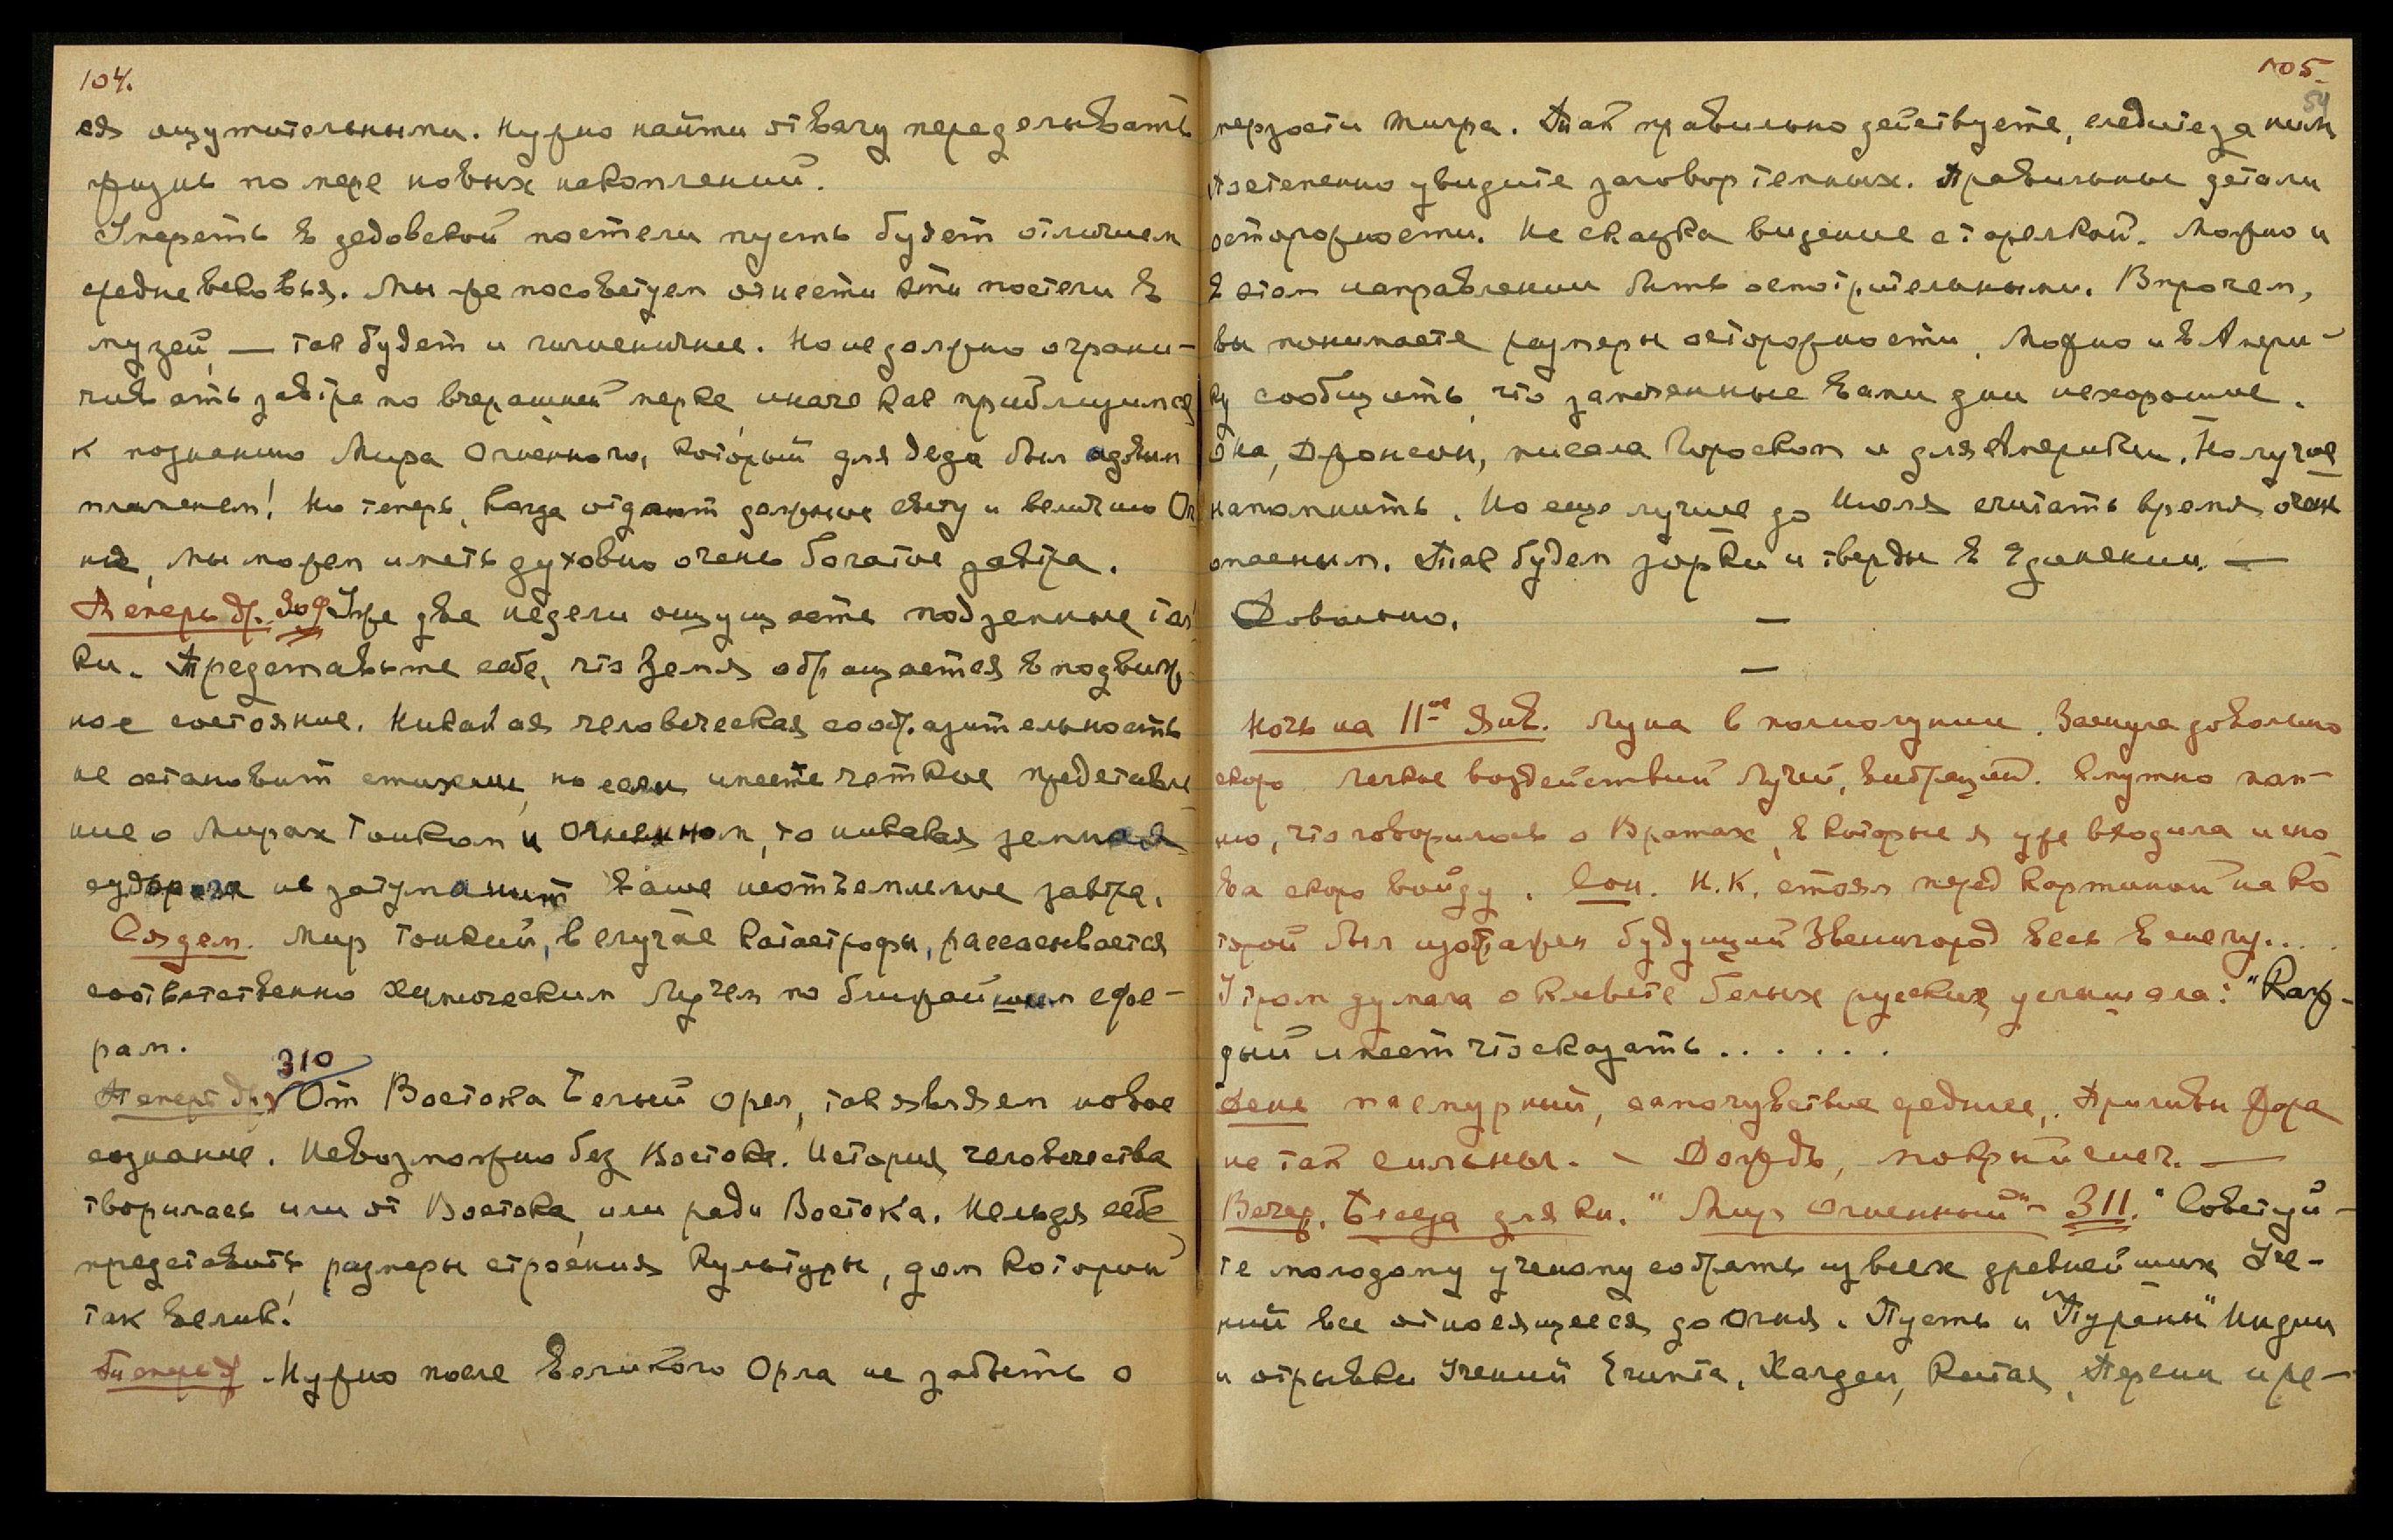 104.
ся ощутительными. Нужно найти отвагу переделывать
жизнь по мере новых накоплений.
Умереть в дедовской постели пусть будет отличием
средневековья. Мы же посоветуем отнести эти постели в
музей, — так будет и гигиеничнее. Но не должно ограни-
чивать завтра по вчерашней мерке, иначе как приблизимся
к познанию Мира Огненного, который для деда был адовым
пламенем! Но теперь, когда отдают должное свету и величию Ог
ня, мы можем иметь духовно очень богатое завтра.
Теперь др. 309 Уже две недели ощущаете подземные тол
ки. Представьте себе, что Земля обращается в подвиж
ное состояние. Никакая человеческая сообразительность
не остановит стихии, но если имеете четкое представле
ние о Мирах Тонком и Огненном, то никакая земная
судорога не затуманит ваше неотъемлемое завтра.
Создем. Мир Тонкий, в случае катастрофы, рассасывается
соответственно химическим Лучам по ближайшим сфе-
рам.
310
Теперь др. От Востока Белый орел, так являем новое
сознание. Невозможно без Востока. История человечества
творилась или от Востока, или ради Востока. Нельзя себе
представить размеры строения Культуры, дом который
так велик!
Теперь др. Нужно после Великого Орла не забыть о
105.
54
мерзости тигра. Так правильно действуете, следите за ним
Постепенно увидите заговор темных. Правильны детали
осторожности. Не сказка видение с тарелкой. Можно и
в этом направлении быть осмотрительными. Впрочем,
вы понимаете размеры осторожности. Можно и в Амери-
ку сообщить, что замеченные вами дни нехорошие.
Она, Джонсон, писала Гороскоп и для Америки. Но лучше
напомнить. Но еще лучше до Июля считать время очень
опасным. Так будем зорки и тверды в Единении. —
Довольно. —
—
Ночь на 11ое Янв. Луна в полнолунии. Заснула довольно
скоро. Легкое воздействий Лучей, вибраций. Смутно пом-
ню, что говорилось о Вратах, в которые я уже входила и сно
ва скоро войду. Сон. Н.К. стоял перед картиной на ко
торой был изображен будущий Звенигород весь в снегу...
Утром думала о клевете белых русских, услышала: "Каж-
дый имеет что сказать......
День пасмурный, самочувствие среднее, Приливы Фора
не так сильны. - Дождь, мокрый снег. —
Вечер. Беседа для кн. "Мир Огненный" - 311. "Советуй-
те молодому ученому собрать из всех древнейших Уче-
ний все относящееся до Огня. Пусть и "Пураны" Индии
и отрывки Учений Египта, Халдеи, Китая, Персии и ре-